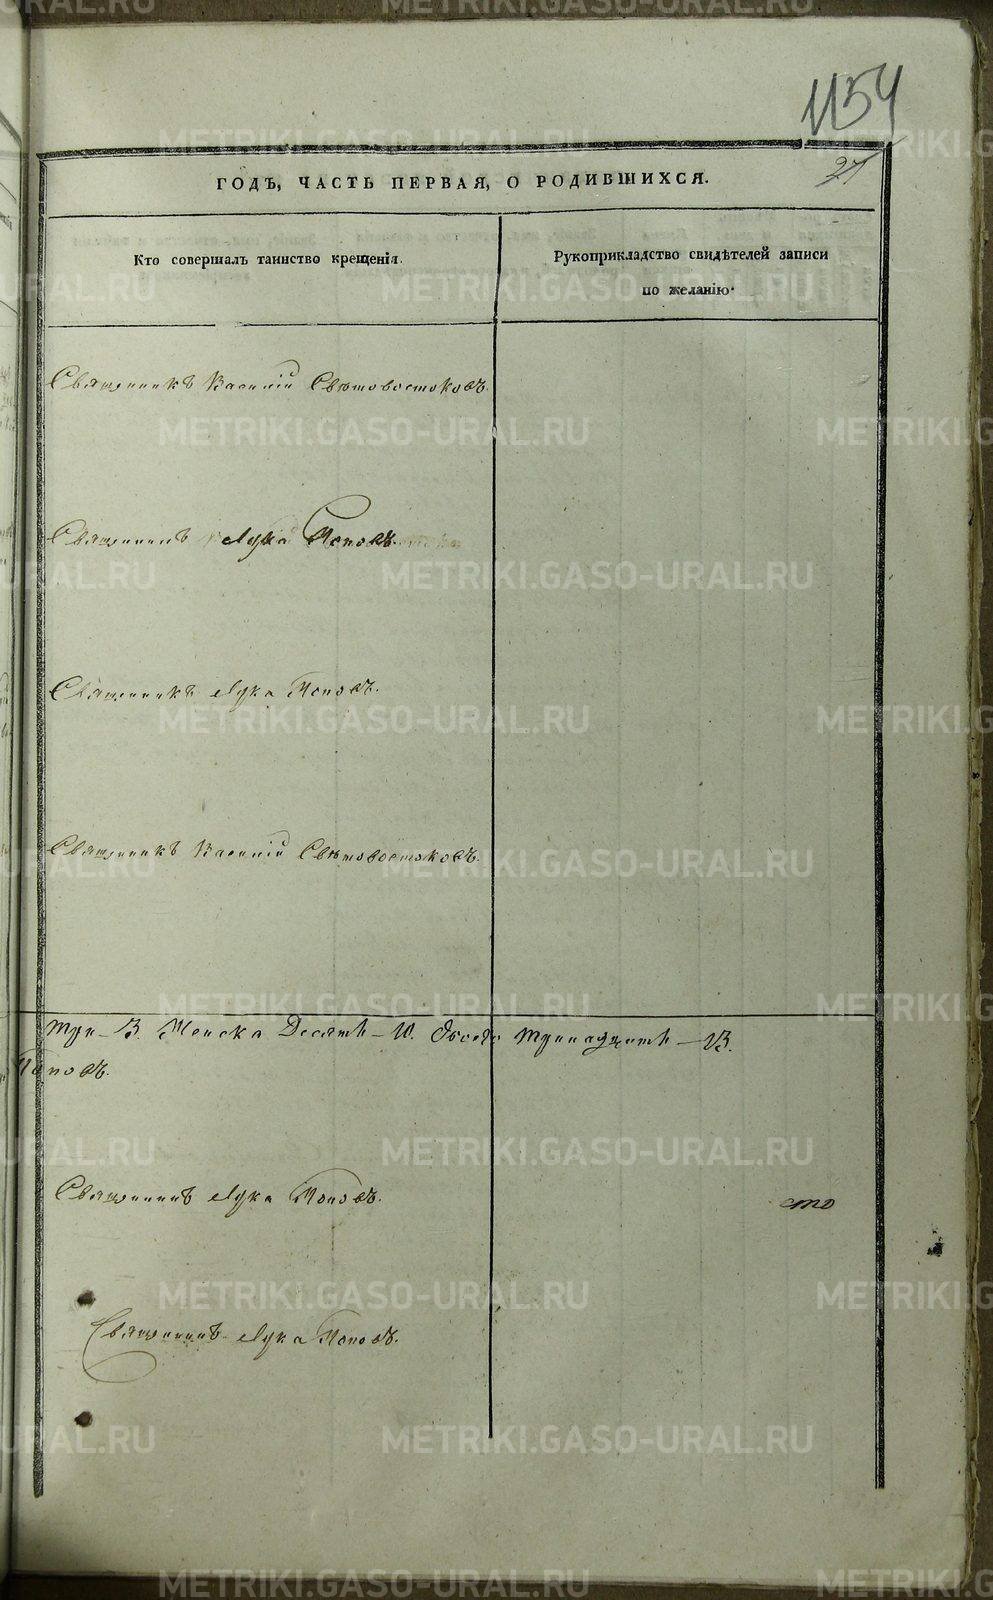 1154
27
ГОДЪ, ЧАСТЬ ПЕРВАЯ, О РОДИВШИХСЯ.
Кто совершалъ таинство крещенія.
Рукоприкладство свидѣтелей записи
по желанію.
Священникъ Василій Свѣтовостоковъ.
Священникъ Лука Поповъ.
Священникъ Лука Поповъ.
Священникъ Василій Свѣтовостоковъ.
три - 3. Женска Десять - 10. обоего тринадцать - 13.
Поповъ.
Священникъ Лука Поповъ.
сто
Священникъ Лука Поповъ.
METRIKI.GASO-URAL.RU